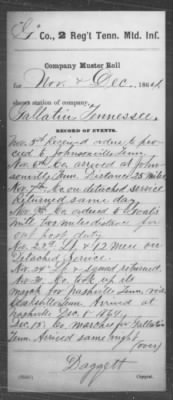 "G" Co., 2 Reg't Tenn. Mtd. Inf.
Company Muster Roll
for Nov. & Dec., 1864,
shows station of company,
Gallatin, Tennessee.
RECORD OF EVENTS.
Nov. 3rd Received orders to pro-
ceed to Johnsonville Tenn.
Nov. 6th Co. arrived at John-
sonville Tenn Distance 25 miles
Nov. 7th Co. on detached service
Returned same day.
Nov. Co. ordered to
ville two miles distance for
out post duty
Nov. 23rd Lt. & 12 Men on
Detached Service.
Nov. 24 Lt. & squad returned.
Nov. Co. took up its
march for Nashville Tenn, via
Clarksville Tenn Arrived at
Nashville Dec. 8 1864.
Dec. 15 Co. marched for Gallatin
Tenn Arrived same night
(over)
Daggett